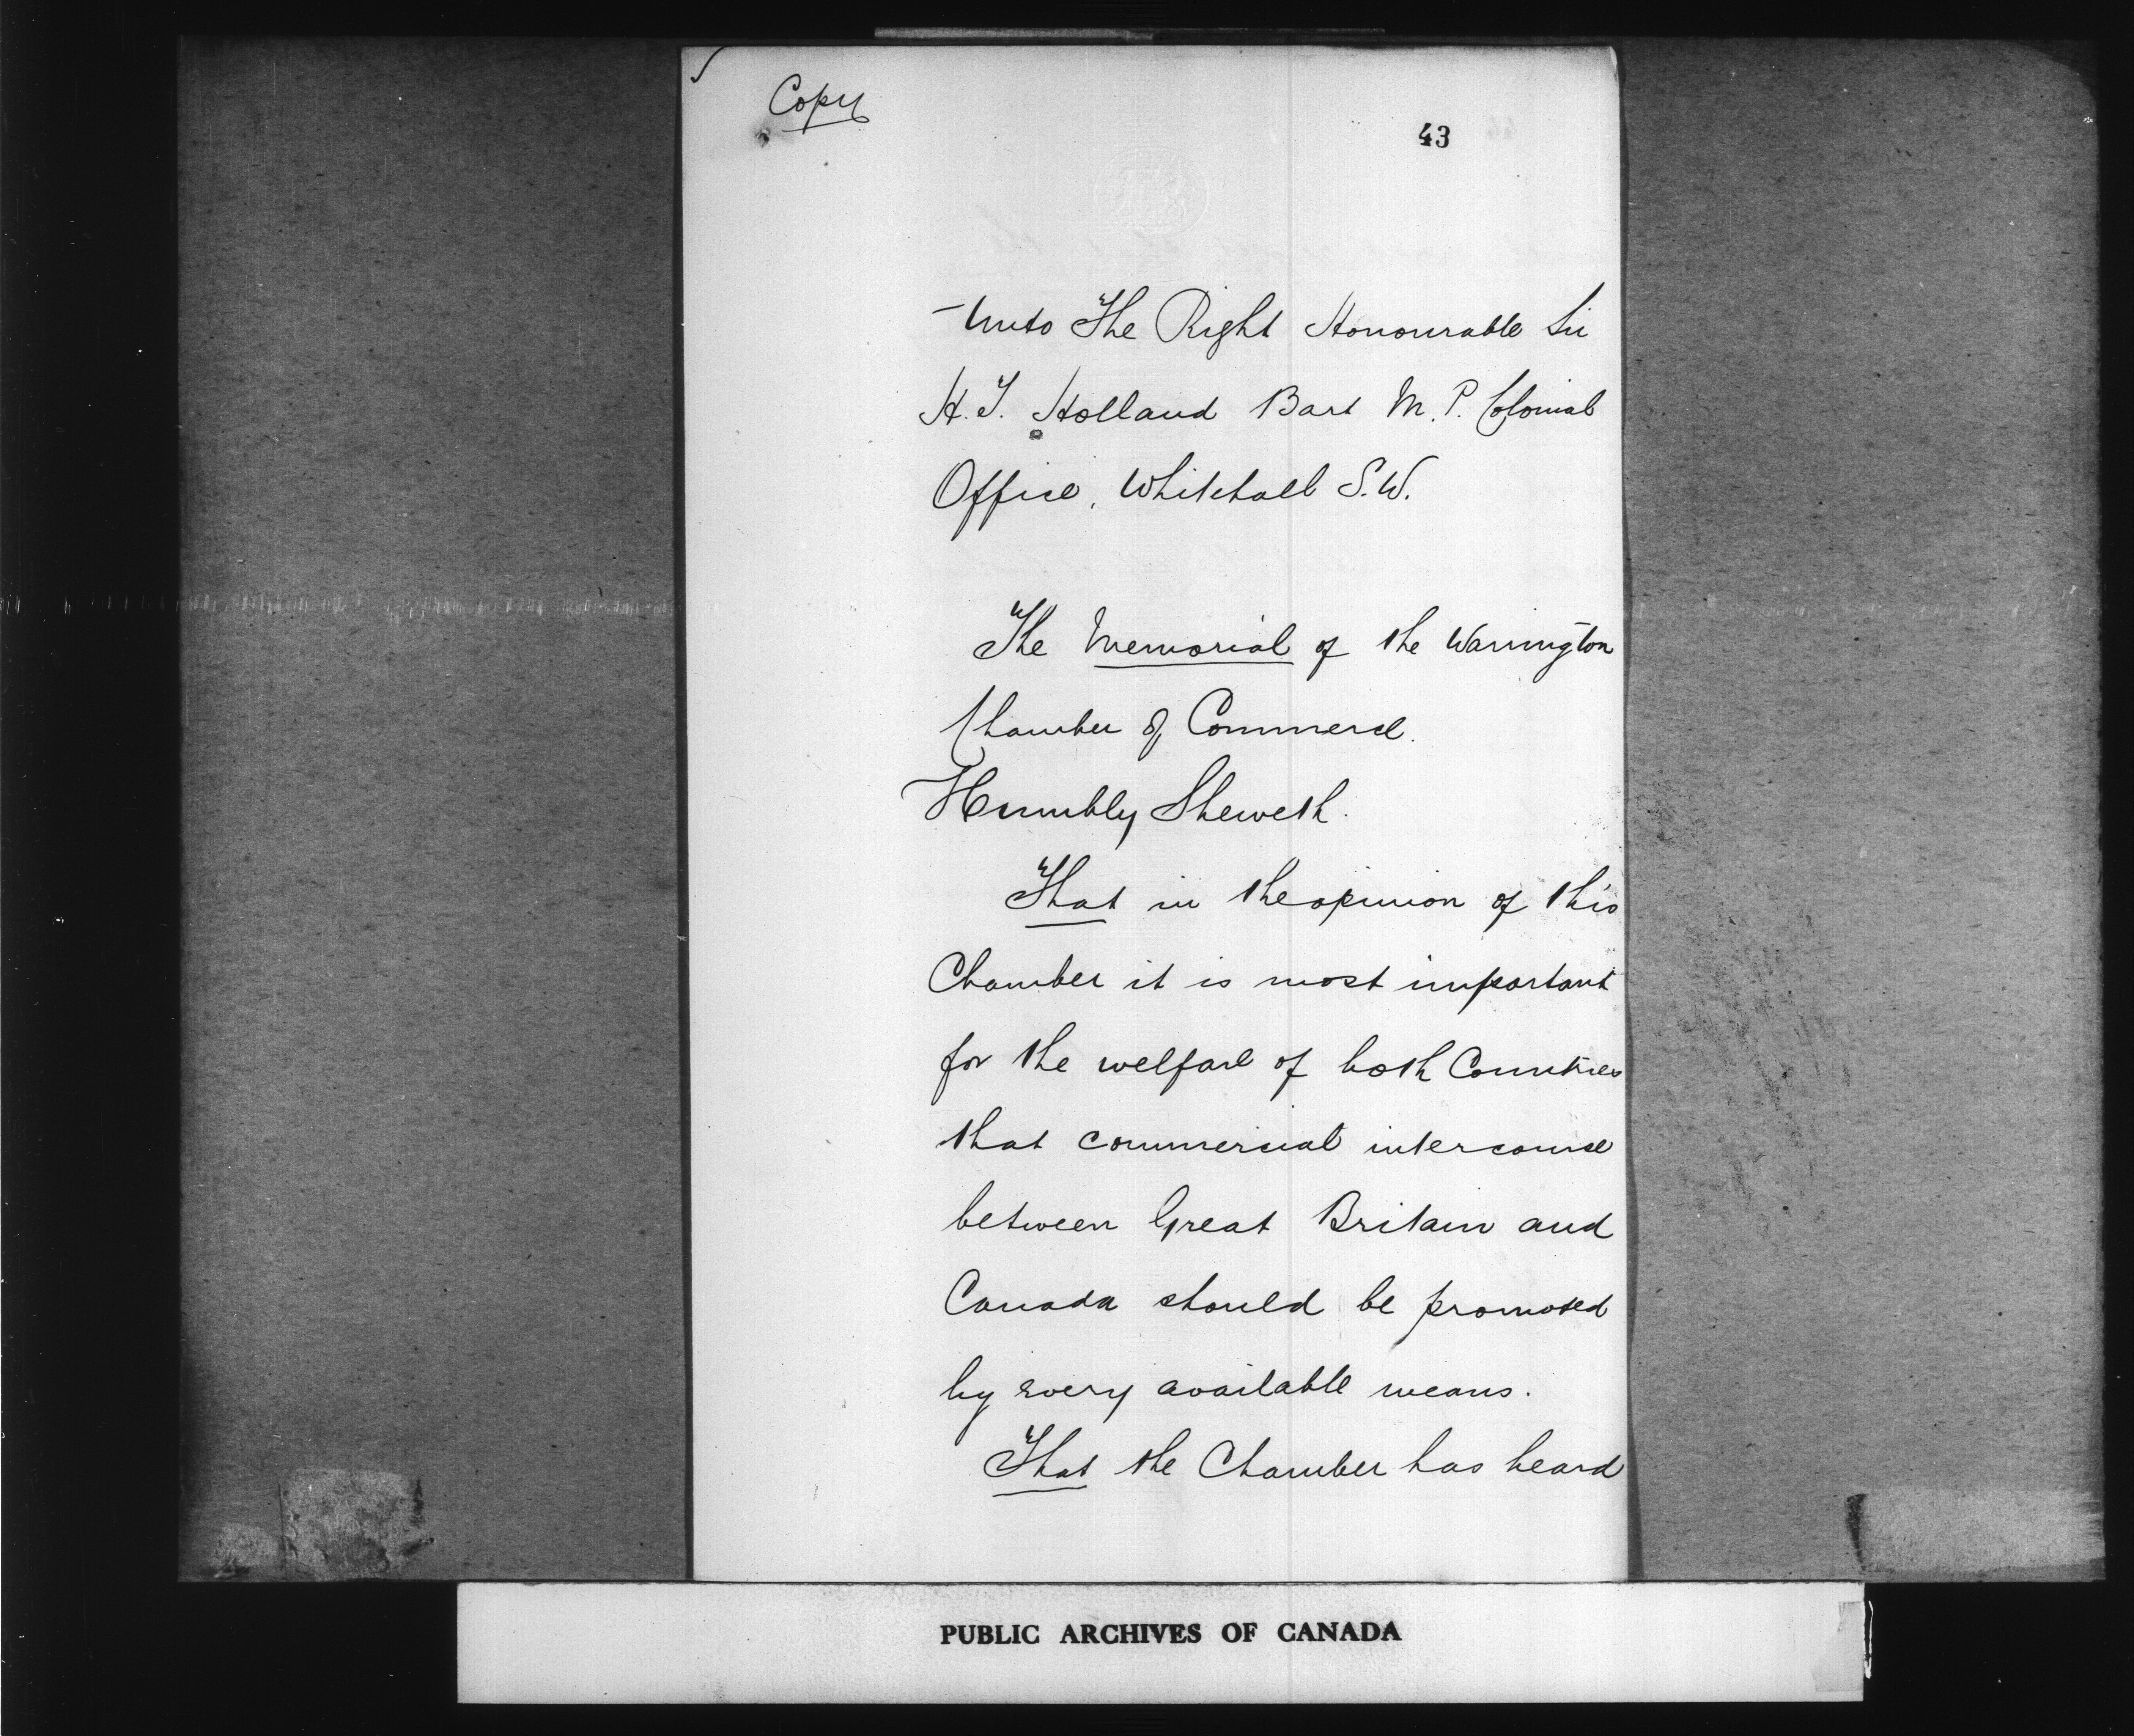 Copy
43
Unto The Right Honourable Sir
H. T. Holland Bart M. P. Colonial
Office, Whitehall S.W.
The Memorial of the Warrington
Chamber of Commerce.
Humbly Sheweth.
That in the opinion of this
Chamber it is most important
for the welfare of both Countries
that commercial intercourse
between Great Britain and
Canada should be promoted
by every available means.
That the Chamber has heard
PUBLIC ARCHIVES OF CANADA